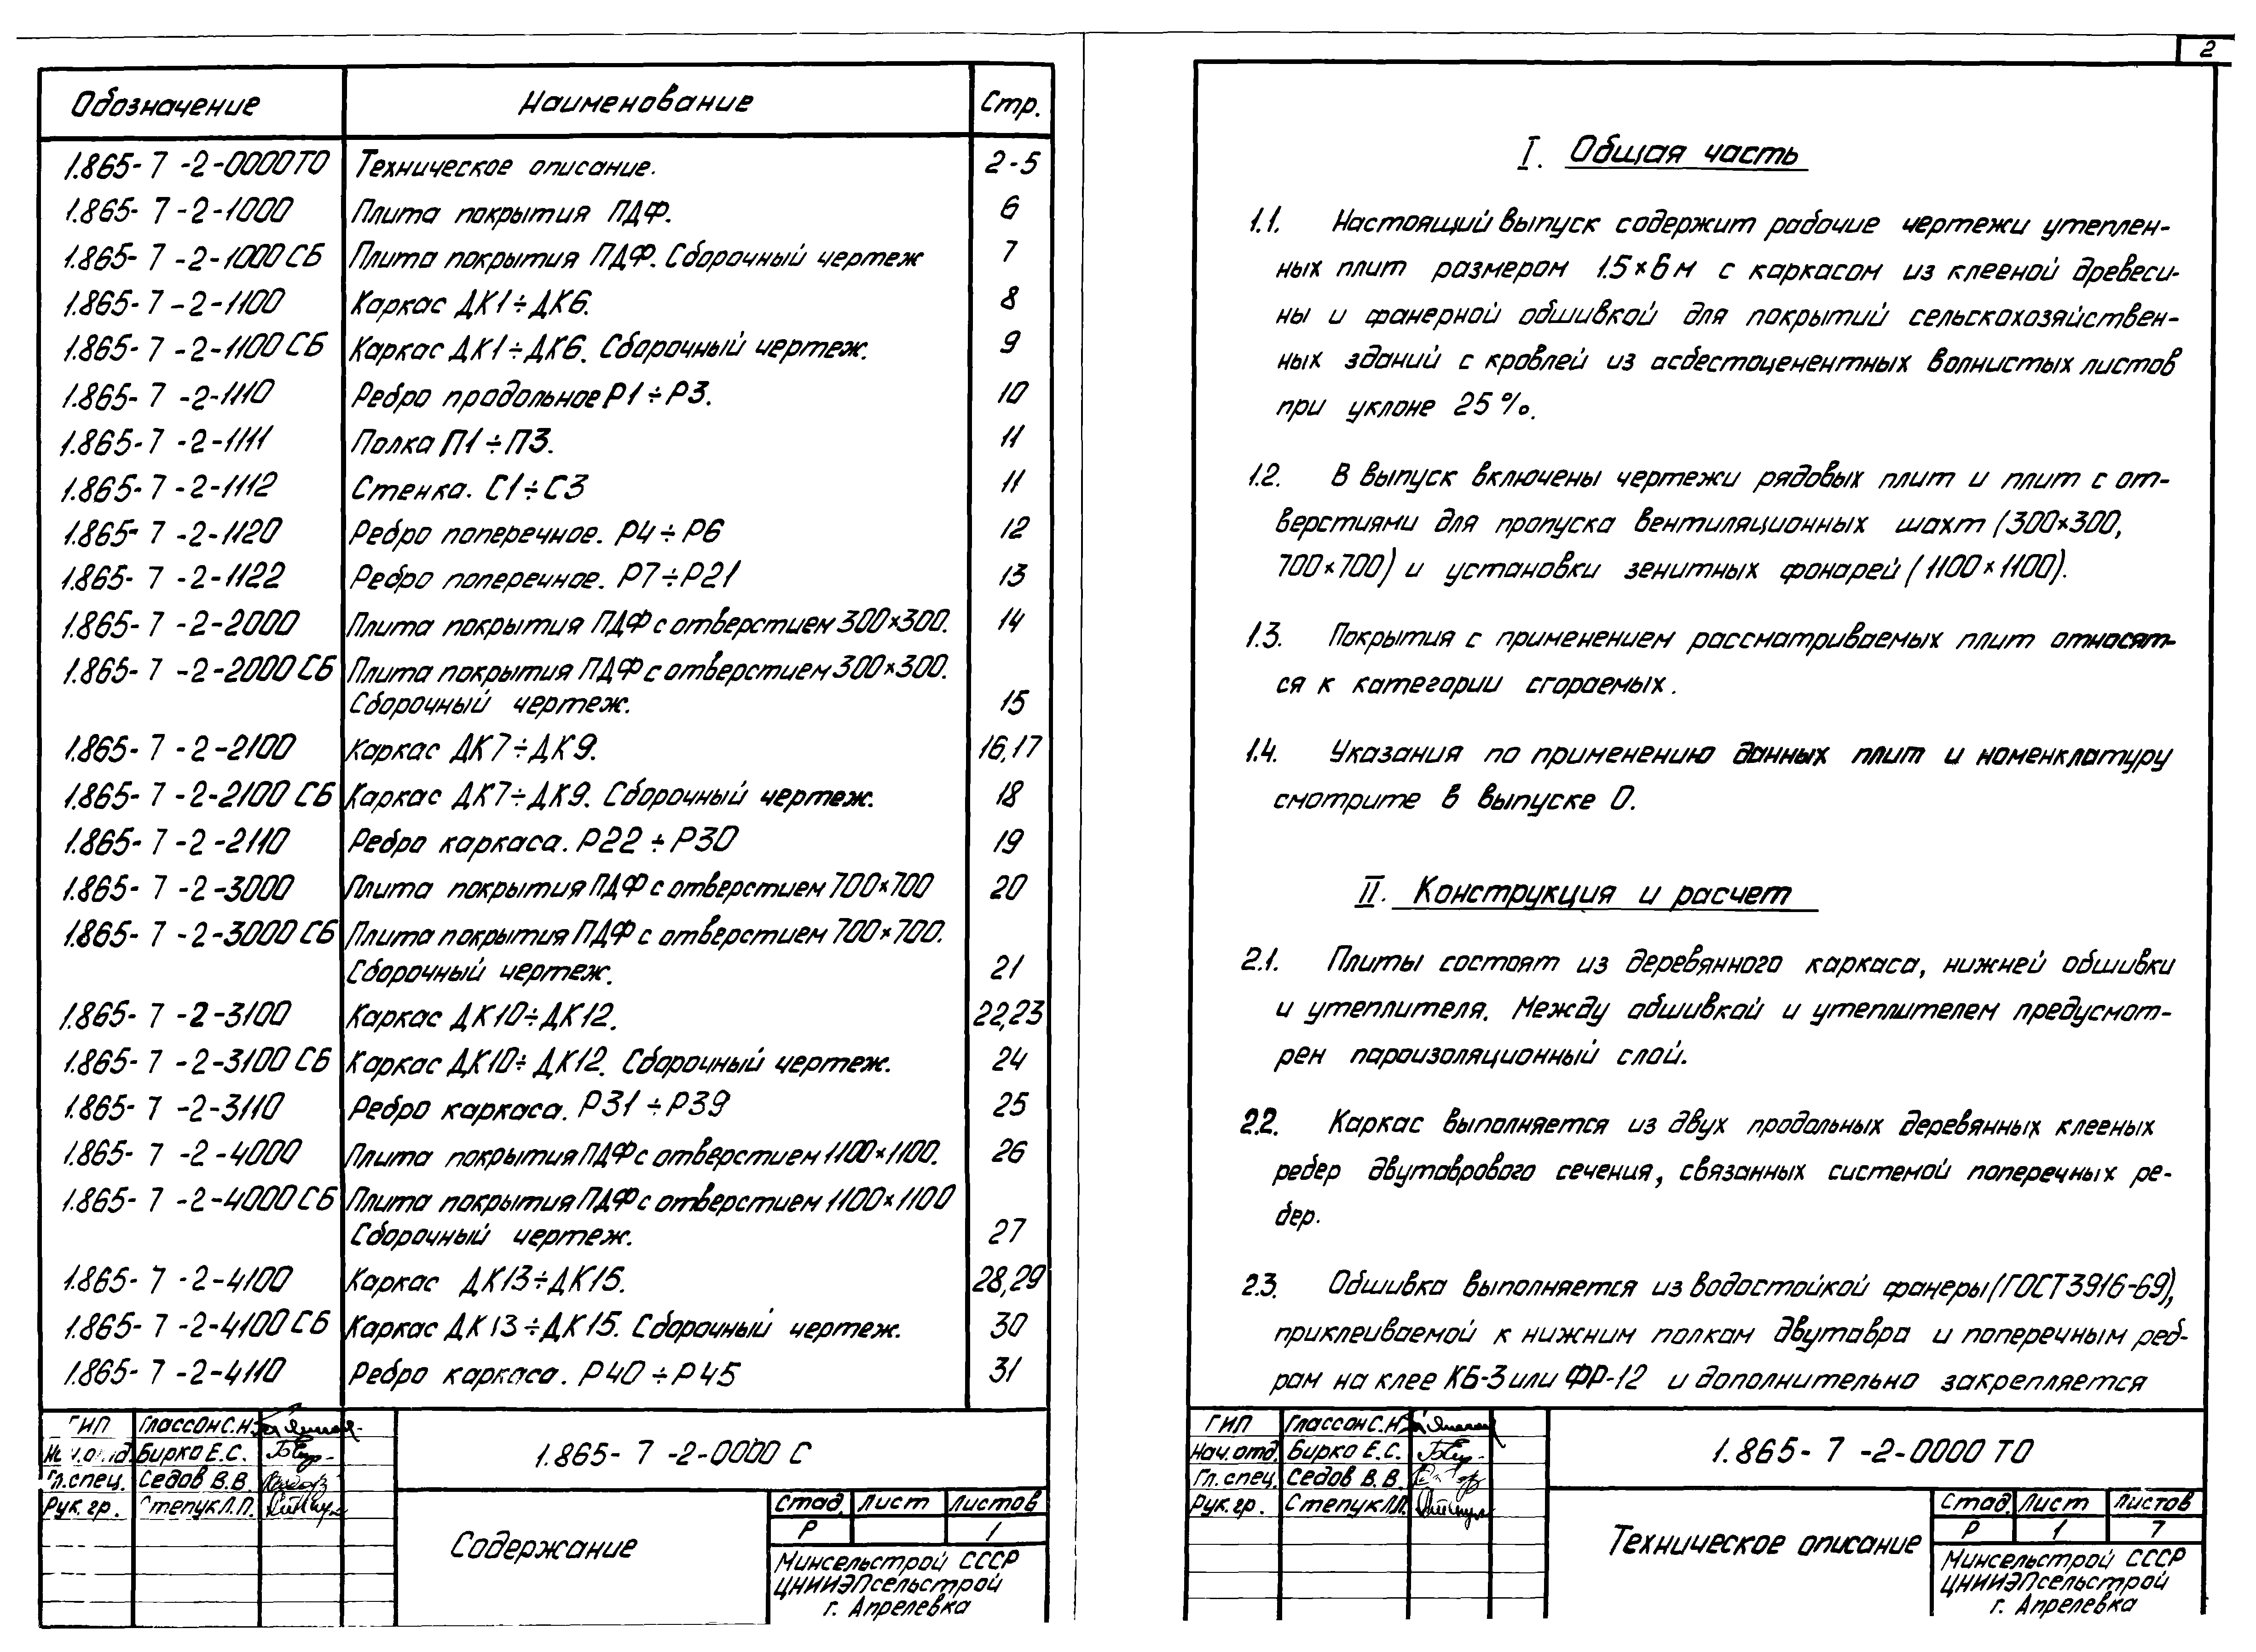 Обозначение Наименование Стр.
1.865-7-2-0000ТО Техническое описание. 2-5
1.865-7-2-1000 Плита покрытия ПДФ. 6
1.865-7-2-1000СБ Плита покрытия ПДФ. Сборочный чертеж 7
1.865-7-2-1100 Каркас ДК1÷ДК6. 8
1.865-7-2-1100СБ Каркас ДК1÷ДК6. Сборочный чертеж. 9
1.865-7-2-1110 Ребро продольное Р1÷Р3. 10
1.865-7-2-1111 Полка П1÷П3. 11
1.865-7-2-1112 Стенка. С1÷С3 11
1.865-7-2-1120 Ребро поперечное. Р4÷Р6 12
1.865-7-2-1122 Ребро поперечное. Р7÷Р21 13
1.865-7-2-2000 Плита покрытия ПДФ с отверстием 300×300. 14
1.865-7-2-2000СБ Плита покрытия ПДФ с отверстием 300×300.
Сборочный чертеж. 15
1.865-7-2-2100 Каркас ДК7÷ДК9. 16,17
1.865-7-2-2100СБ Каркас ДК7÷ДК9. Сборочный чертеж. 18
1.865-7-2-2110 Ребро каркаса. Р22÷Р30 19
1.865-7-2-3000 Плита покрытия ПДФ с отверстием 700×700 20
1.865-7-2-3000СБ Плита покрытия ПДФ с отверстием 700×700.
Сборочный чертеж. 21
1.865-7-2-3100 Каркас ДК10÷ДК12. 22,23
1.865-7-2-3100СБ Каркас ДК10÷ДК12. Сборочный чертеж. 24
1.865-7-2-3110 Ребро каркаса. Р31÷Р39 25
1.865-7-2-4000 Плита покрытия ПДФ с отверстием 1100×1100. 26
1.865-7-2-4000СБ Плита покрытия ПДФ с отверстием 1100×1100
Сборочный чертеж. 27
1.865-7-2-4100 Каркас ДК13÷ДК15. 28,29
1.865-7-2-4100СБ Каркас ДК13÷ДК15. Сборочный чертеж. 30
1.865-7-2-4110 Ребро каркаса. Р40÷Р45 31
ГИП Глассон С.Н.
Нач.отд. Бирко Е.С.
Гл.спец. Седов В.В.
Рук.гр. Степук Л.П.
1.865-7-2-0000 С
Содержание
Стад. Лист Листов
Р 1
Минсельстрой СССР
ЦНИИЭПсельстрой
г. Апрелевка
2
I. Общая часть
1.1. Настоящий выпуск содержит рабочие чертежи утеплен-
ных плит размером 1.5×6 м с каркасом из клееной древеси-
ны и фанерной обшивкой для покрытий сельскохозяйствен-
ных зданий с кровлей из асбестоцементных волнистых листов
при уклоне 25%.
1.2. В выпуск включены чертежи рядовых плит и плит с от-
верстиями для пропуска вентиляционных шахт (300×300,
700×700) и установки зенитных фонарей (1100×1100).
1.3. Покрытия с применением рассматриваемых плит относят-
ся к категории сгораемых.
1.4. Указания по применению данных плит и номенклатуру
смотрите в выпуске 0.
II. Конструкция и расчет
2.1. Плиты состоят из деревянного каркаса, нижней обшивки
и утеплителя. Между обшивкой и утеплителем предусмот-
рен пароизоляционный слой.
2.2. Каркас выполняется из двух продольных деревянных клееных
ребер двутаврового сечения, связанных системой поперечных ре-
бер.
2.3. Обшивка выполняется из водостойкой фанеры (ГОСТ 3916-69),
приклеиваемой к нижним полкам двутавра и поперечным реб-
рам на клее КБ-3 или ФР-12 и дополнительно закрепляется
ГИП Глассон С.Н.
Нач.отд. Бирко Е.С.
Гл.спец. Седов В.В.
Рук.гр. Степук Л.П.
1.865-7-2-0000 ТО
Техническое описание
Стад. Лист Листов
Р 1 7
Минсельстрой СССР
ЦНИИЭПсельстрой
г. Апрелевка